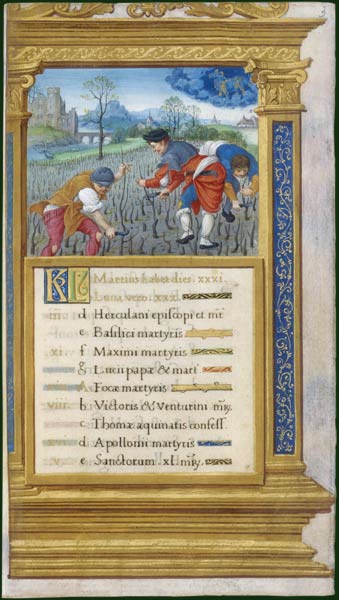 3
KL Martius habet dies. xxxi
Luna vero. xxx.
d Herculani episcopi et mr̃
e Basilici martyris
xi. f Maximi martyris
g Lucii papæ & mart
A Focæ martyris
viii b Victoris & Venturini mr̃y.
c Thomæ aquinatis confess.
d Apollonii martyris
e Sanctorum xl mr̃y.